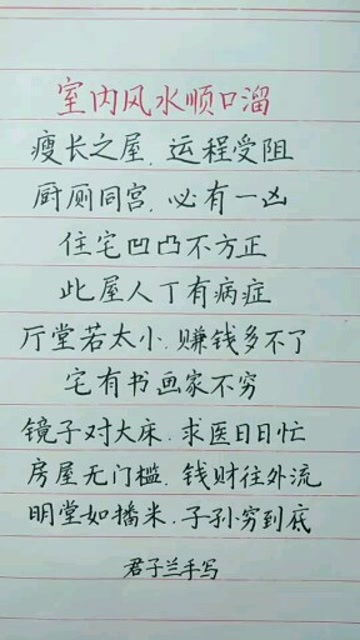 室内风水顺口溜
瘦长之屋.运程受阻
厨厕同宫.必有一凶
住宅凹凸不方正
此屋人丁有病症
厅堂若太小.赚钱多不了
宅有书画家不穷
镜子对大床.求医日日忙
房屋无门槛.钱财往外流
明堂如播米.子孙穷到底
君子兰手写